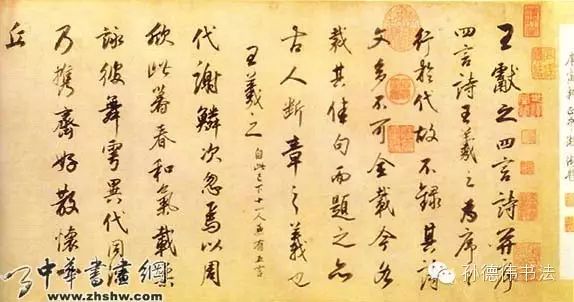 王獻之四言詩并序
四言詩王羲之為序序
行於代故不錄其詩
文多不可全載今各
裁其佳句而題之亦
古人断章之義也
王羲之 自此已下十一人並有五言
代謝鱗次忽焉以周
欣此暮春和氣載柔
詠彼舞雩異代同流
乃攜齊好散懷一
丘
中華書畫網
www.zhshw.com
孙德伟书法